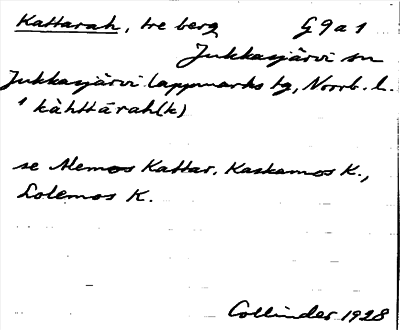 Kattarah, tre berg G9a1
Jukkasjärvi sn
Jukkasjärvi lappmarks tg, Norrb. l.
¹ kàhttárah(k)
se Alemos Kattar, Kaskamos K.,
Lolemos K.
Collinder 1928